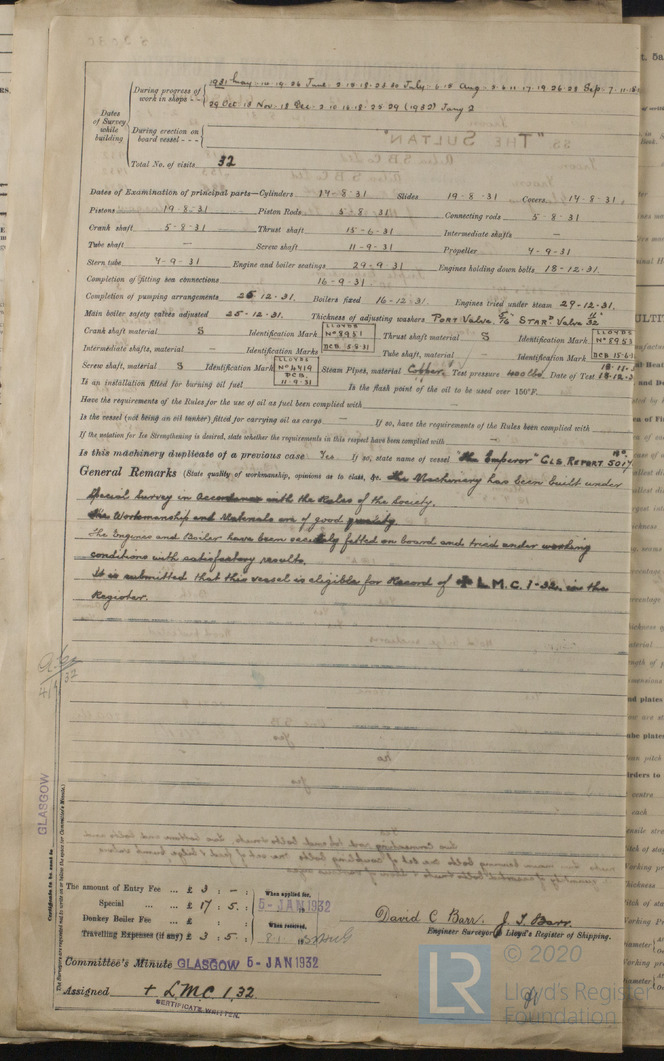 During progress of work in shops - - 1931 May - 14 - 26 June 2 15 - 18 - 23 30 July - 6 - 15 Aug - 2 - 6 11 - 17 - 19 - 26 - 28 Sep - 7 - 11 -
29 Oct 13 Nov - 18 Dec - 2 10 16 - 18 - 25 - 29 (1932) Jany 2
Dates of Survey while building
During erection on board vessel - - -
SS "THE SULTAN"
Total No. of visits 32
Dates of Examination of principal parts—Cylinders 14 - 8 - 31 Slides 19 - 8 - 31 Covers 14 - 8 - 31
Pistons 19 - 8 - 31 Piston Rods 5 - 8 - 31 Connecting rods 5 - 8 - 31
Crank shaft 5 - 8 - 31 Thrust shaft 15 - 6 - 31 Intermediate shafts —
Tube shaft — Screw shaft 11 - 9 - 31 Propeller 4 - 9 - 31
Stern tube 4 - 9 - 31 Engine and boiler seatings 29 - 9 - 31 Engines holding down bolts 18 - 12 - 31
Completion of fitting sea connections 16 - 9 - 31
Completion of pumping arrangements 25 - 12 - 31 Boilers fixed 16 - 12 - 31 Engines tried under steam 29 - 12 - 31
Main boiler safety valves adjusted 25 - 12 - 31 Thickness of adjusting washers PORT VALVE 5/16" STAR'D VALVE 11/32"
Crank shaft material S Identification Mark LLOYDS No 8951 DCB. 5-8-31 Thrust shaft material S Identification Mark LLOYDS No 8951 DCB. 15-6-
Intermediate shafts, material — Identification Marks Tube shaft, material — Identification Mark
Screw shaft, material S Identification Mark LLOYDS No 4419 DCB. 11-9-31 Steam Pipes, material Copper Test pressure 400 lbs. Date of Test
Is an installation fitted for burning oil fuel — Is the flash point of the oil to be used over 150°F. —
Have the requirements of the Rules for the use of oil as fuel been complied with —
Is the vessel (not being an oil tanker) fitted for carrying oil as cargo — If so, have the requirements of the Rules been complied with —
If the notation for Ice Strengthening is desired, state whether the requirements in this respect have been complied with —
Is this machinery duplicate of a previous case Yes If so, state name of vessel "The Emperor" GLS REPORT No 5017
General Remarks (State quality of workmanship, opinions as to class, &c. The Machinery has been built under
Special Survey in accordance with the Rules of the Society.
The Workmanship and Materials are of good quality.
The Engines and Boiler have been securely fitted on board and tried under working
conditions with satisfactory results.
It is submitted that this vessel is eligible for Record of + L.M.C. 1-32. in the
Register.
GLASGOW
Certificate to be sent to
(The Surveyors are requested not to write on or below the space for Committee's Minute.)
The amount of Entry Fee ... £ 3 : - :
Special ... £ 17 : 5 :
Donkey Boiler Fee ... £ : :
Travelling Expenses (if any) £ 3 : 5 :
When applied for,
5 - JAN 1932
When received,
David C Barr. J. T. Barr.
Engineer Surveyor Lloyd's Register of Shipping.
Committee's Minute GLASGOW 5 - JAN 1932
Assigned + L.M.C. 1,32
CERTIFICATE WRITTEN.
LR
© 2020
Lloyd's Register
Foundation